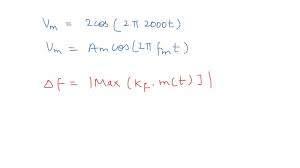 Vm = 2cos(2π2000t)
Vm = Am cos(2π fm t)
Δf = |Max (kf. m(t)]|